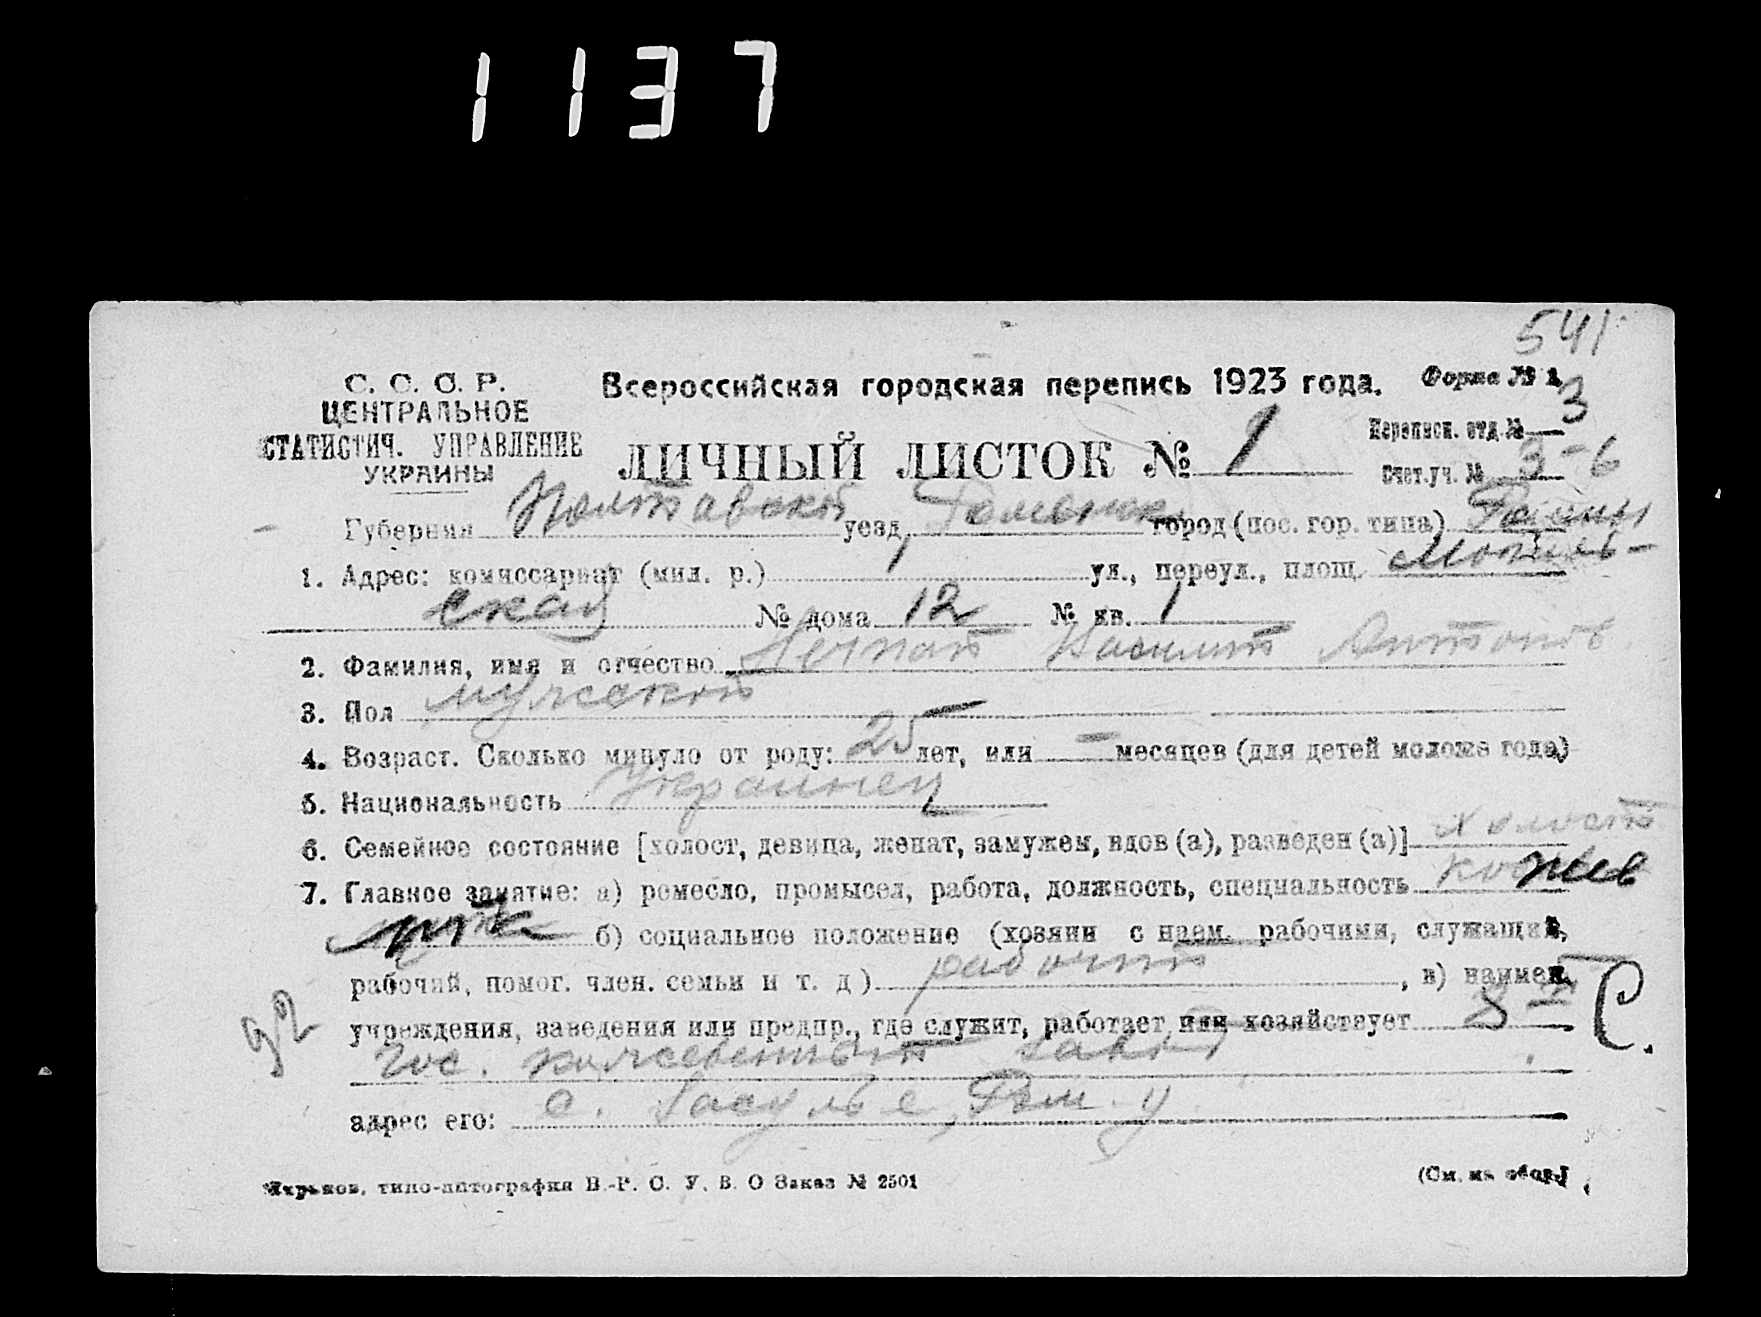 1137
541
С. С. С. Р.
ЦЕНТРАЛЬНОЕ
СТАТИСТИЧ. УПРАВЛЕНИЕ
УКРАИНЫ
Всероссийская городская перепись 1923 года.
Форма № 1.
ЛИЧНЫЙ ЛИСТОК № 1
Переписн. отд. № 3
Счет. уч. № 3-6
Губерния Полтавской уезд Роменск город (пос. гор. типа) Ромны
1. Адрес: комиссариат (мил. р.) 1 ул., переул., площ.
ская № дома 12 № кв. 1
2. Фамилия, имя и отчество
3. Пол мужской
4. Возраст. Сколько минуло от роду: 25 лет, или — месяцев (для детей моложе года)
5. Национальность Украинец
6. Семейное состояние [холост, девица, женат, замужем, вдов (а), разведен (а)] холост
7. Главное занятие: а) ремесло, промысел, работа, должность, специальность кожев
б) социальное положение (хозяин с наем. рабочими, служащий,
рабочий, помог. член. семьи и т. д.) рабочий, в) наимен.
учреждения, заведения или предпр., где служит, работает или хозяйствует 8 С.
Гос. кожевенный завод
адрес его: с. Засулье, Ром. у
Харьков, типо-литография В.-Р. С. У. В. О Заказ № 2501
(См. на обор.)